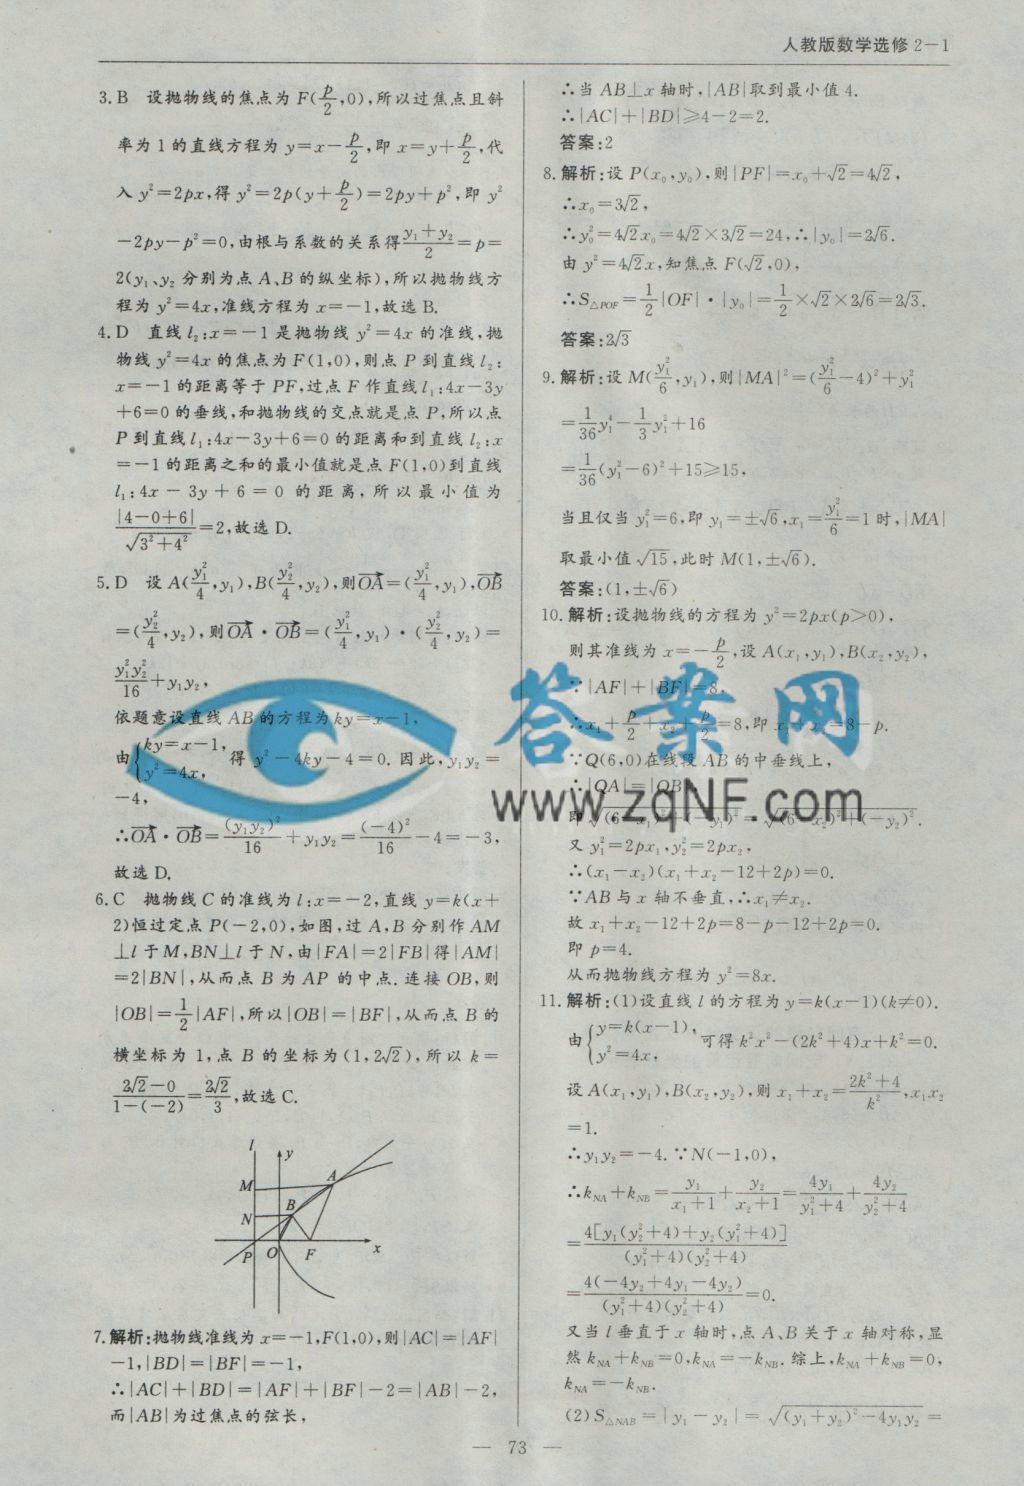 人教版数学选修2－1
3. B　设抛物线的焦点为F(p/2,0),所以过焦点且斜
率为1的直线方程为y=x-p/2,即x=y+p/2,代
入y²=2px,得y²=2p(y+p/2)=2py+p²,即y²
-2py-p²=0,由根与系数的关系得(y₁+y₂)/2=p=
2(y₁、y₂分别为点A、B的纵坐标),所以抛物线方
程为y²=4x,准线方程为x=-1,故选B.
4. D　直线l₂:x=-1是抛物线y²=4x的准线,抛
物线y²=4x的焦点为F(1,0),则点P到直线l₂:
x=-1的距离等于PF,过点F作直线l₁:4x-3y
+6=0的垂线,和抛物线的交点就是点P,所以点
P到直线l₁:4x-3y+6=0的距离和到直线l₂:x
=-1的距离之和的最小值就是点F(1,0)到直线
l₁:4x-3y+6=0的距离,所以最小值为
|4-0+6|/√(3²+4²)=2,故选D.
5. D　设A(y₁²/4,y₁),B(y₂²/4,y₂),则OA→=(y₁²/4,y₁),OB→
=(y₂²/4,y₂),则OA→·OB→=(y₁²/4,y₁)·(y₂²/4,y₂)=
y₁²y₂²/16+y₁y₂,
依题意设直线AB的方程为ky=x-1,
由{ky=x-1, y²=4x,得y²-4ky-4=0.因此,y₁y₂=
-4,
∴OA→·OB→=(y₁y₂)²/16+y₁y₂=(-4)²/16-4=-3,
故选D.
6. C　抛物线C的准线为l:x=-2,直线y=k(x+
2)恒过定点P(-2,0),如图,过A,B分别作AM
⊥l于M,BN⊥l于N,由|FA|=2|FB|得|AM|
=2|BN|,从而点B为AP的中点.连接OB,则
|OB|=1/2|AF|,所以|OB|=|BF|,从而点B的
横坐标为1,点B的坐标为(1,2√2),所以k=
(2√2-0)/(1-(-2))=2√2/3,故选C.
l
y
M
A
N
B
P
O
F
x
7. 解析:抛物线准线为x=-1,F(1,0),则|AC|=|AF|
-1,|BD|=|BF|=-1,
∴|AC|+|BD|=|AF|+|BF|-2=|AB|-2,
而|AB|为过焦点的弦长,
∴当AB⊥x轴时,|AB|取到最小值4.
∴|AC|+|BD|≥4-2=2.
答案:2
8. 解析:设P(x₀,y₀),则|PF|=x₀+√2=4√2,
∴x₀=3√2,
∴y₀²=4√2x₀=4√2×3√2=24,∴|y₀|=2√6.
由y²=4√2x,知焦点F(√2,0),
∴S△POF=1/2|OF|·|y₀|=1/2×√2×2√6=2√3.
答案:2√3
9. 解析:设M(y₁²/6,y₁),则|MA|²=(y₁²/6-4)²+y₁²
=1/36y₁⁴-1/3y₁²+16
=1/36(y₁²-6)²+15≥15,
当且仅当y₁²=6,即y₁=±√6,x₁=y₁²/6=1时,|MA|
取最小值√15,此时M(1,±√6).
答案:(1,±√6)
10. 解析:设抛物线的方程为y²=2px(p>0),
则其准线为x=-p/2,设A(x₁,y₁),B(x₂,y₂),
∵|AF|+|BF|=8,
∴x₁+p/2+x₂+p/2=8,即x₁+x₂=8-p.
∵Q(6,0)在线段AB的中垂线上,
∴|QA|=|QB|
即√((6-x₁)²+(-y₁)²)=√((6-x₂)²+(-y₂)²).
又y₁²=2px₁,y₂²=2px₂,
∴(x₁-x₂)(x₁+x₂-12+2p)=0.
∵AB与x轴不垂直,∴x₁≠x₂.
故x₁+x₂-12+2p=8-p-12+2p=0.
即p=4.
从而抛物线方程为y²=8x.
11. 解析:(1)设直线l的方程为y=k(x-1)(k≠0).
由{y=k(x-1), y²=4x,可得k²x²-(2k²+4)x+k²=0.
设A(x₁,y₁),B(x₂,y₂),则x₁+x₂=(2k²+4)/k²,x₁x₂
=1.
∴y₁y₂=-4.∵N(-1,0),
∴kNA+kNB=y₁/(x₁+1)+y₂/(x₂+1)=4y₁/(y₁²+4)+4y₂/(y₂²+4)
=4[y₁(y₂²+4)+y₂(y₁²+4)]/((y₁²+4)(y₂²+4))
=4(-4y₂+4y₁-4y₁+4y₂)/((y₁²+4)(y₂²+4))=0.
又当l垂直于x轴时,点A、B关于x轴对称,显
然kNA+kNB=0,kNA=-kNB.综上,kNA+kNB=0,
kNA=-kNB.
(2)S△NAB=|y₁-y₂|=√((y₁+y₂)²-4y₁y₂)=
答案网
www.zqNF.com
— 73 —